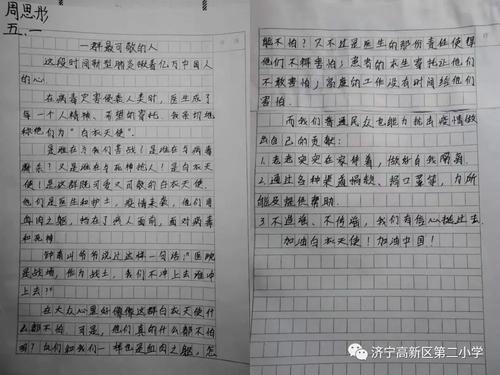 周思彤
五.一
一群最可敬的人
这段时间新型肺炎揪着亿万中国人
的心。
在病毒灾害侵袭人类时，医生成了
每一个人精神、希望的寄托。我亲切地
称他们为"白衣天使"。
是谁在与我们苦战！是谁在与病毒
厮杀？又是谁在与死神抢人！是白衣天
使！是这群既可爱又可敬的白衣天使。
他们是医生和护士，疫情来袭，他们用
血肉之躯，挡在了病人面前，面对病毒
和死神。
钟南山爷爷说过这样一句话："医院
是战场，他为战士，我们不冲上去谁冲
上去？"
在大众心里好像这群白衣天使什
么都不怕 可是，他们真的什么都不怕
吗？他们和我们一样也是血肉之躯，怎
能不怕？只不过是医生的那份责任使得
他们不能害怕；患者的求生寄托让他们
不敢害怕；高度的工作没有时间给他们
害怕。
而我们普通民众也能为抗击疫情做
出自己的贡献：
1.老老实实在家待着，做好自我隔离。
2.通过各种渠道捐款、捐口罩等，力所
能及提供帮助。
3.不造谣、不传谣，我们有信心挺过去。
加油白衣天使！加油中国！
济宁高新区第二小学